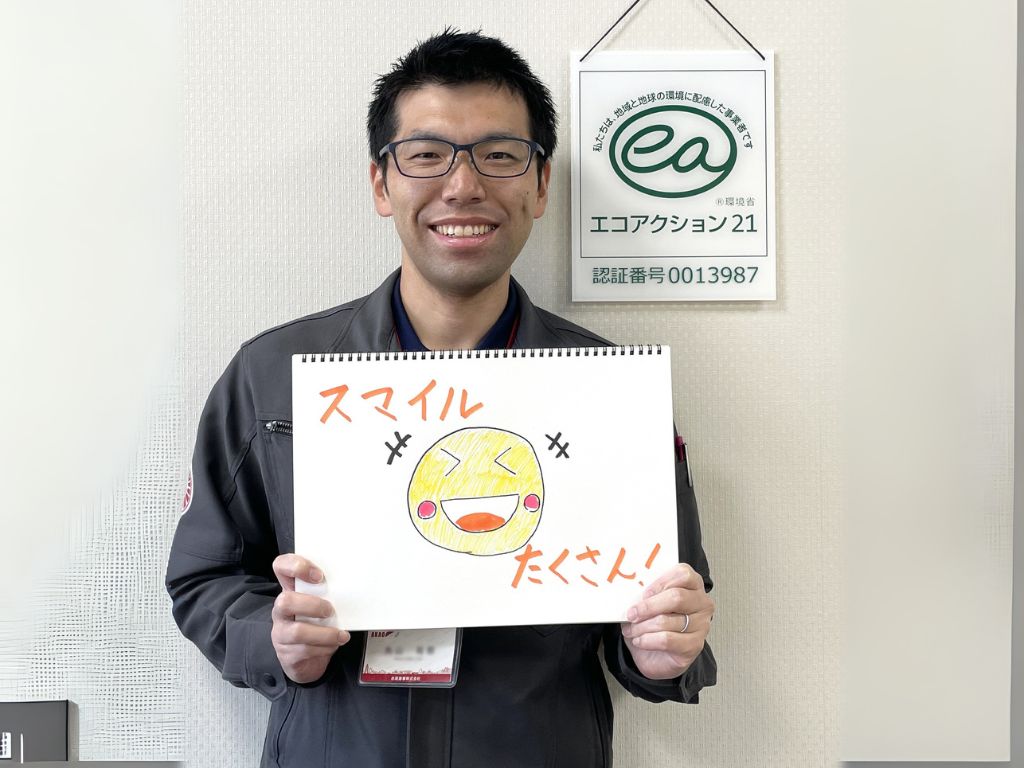 私たちは、地域と地球の環境に配慮した事業者です
ea
®環境省
エコアクション21
認証番号0013987
スマイル
たくさん!